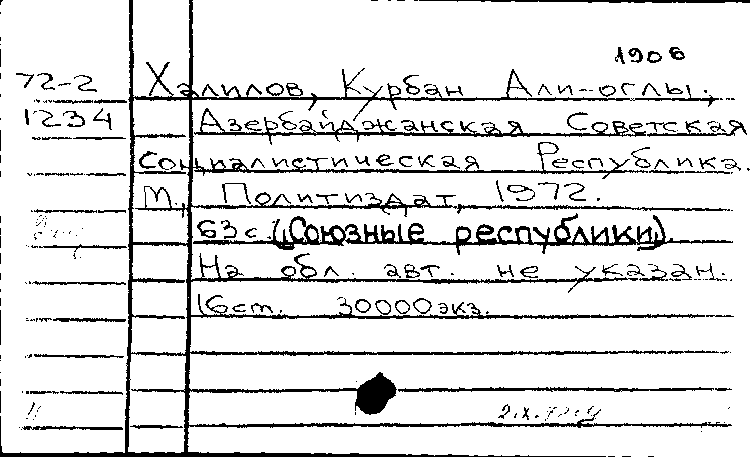 1906
72-2 Халилов, Курбан Али-оглы.,
1234 Азербайджанская Советская
социалистическая Республика.
М., Политиздат, 1972.
63 с. (Союзные республики).
На обл. авт. не указан.
16 см. 30000 экз.